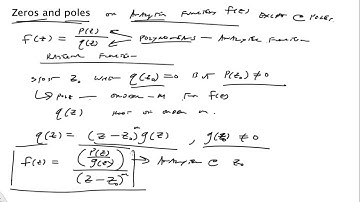 Zeros and poles or Analytic Functions f(z) except @ poles.
f(z) = P(z)/q(z) ← Polynomials – Analytic Function
Rational Function
z₀ when q(z₀) = 0 but P(z₀) ≠ 0
↳ Pole – order – m for f(z)
q(z) root or order m.
q(z) = (z-z₀)ᵐ g(z) , g(z) ≠ 0
f(z) = (P(z)/g(z))/(z-z₀)ᵐ → Analytic @ z₀